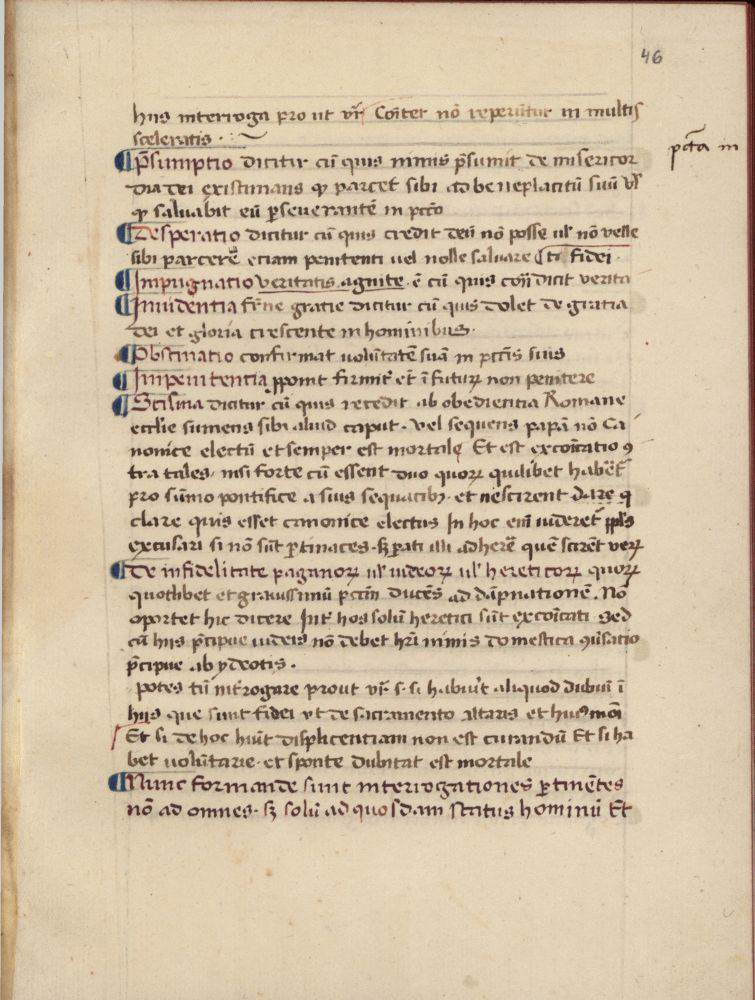 46
hiis interroga prout vr̄ Cōiter nō reperiūtur in multis
sceleratis ·
P̄sumptio dicitur cū quis nimis p̄sumit de misericor
dia dei existimans ꝙ parcet sibi ad beneplacitū suū vl̄
ꝙ saluabit eū ꝑseuerantē in pctō
pctā in
Desperatio dicitur cū quis credit deū nō posse ul̄ nō velle
sibi parcere eciam penitenti uel nolle saluare fidei ·
Impugnatio veritatis agnite · ē cū quis dicit verita
Inuidentia fr̄ne gratie dicitur cū quis dolet de gratia
dei et gloria crescente in hominibus ·
Obstinatio confirmat uolūtatē suā in pctīs suis
Inpenitentia ꝓponit firmit̄ et ī futurꝝ non penitere
Scisma dicitur cū quis recedit ab obedientia Romane
ecclīe sumens sibi aliud caput · vel sequens papā nō Ca
nonice electū et semper est mortale Et est excōicatio ꝯ
tra tales · nisi forte cū essent duo quorꝝ quilibet haberet̄
pro sūmo pontifice a suis sequacibꝫ · et nescirent dare q̄
clare quis esset canonice electus In hoc enī uideret̄ ppl̄s
excusari si nō sūt ꝑtinaces · sꝫ parati illi adherē quē scirēt verꝝ
De infidelitate paganorꝝ ul̄ iudeorꝝ ul̄ hereticorꝝ quorꝝ
quotlibet et grauissimū pctm̄ ducēs ad dāpnationē · Nō
oportet hic dicere Int̄ hos solū heretici sūt excōicati sed
cū hiis p̄cipue iudeis nō debet hr̄i nimis domestica ꝯūsatio
p̄cipue ab ydeotis ·
potes tn̄ int̄rogare prout vr̄ · s · si habuit aliquod dubiū ī
hiis que sunt fidei vt de sacramento altaris et huiꝰmōi
Et si de hoc hūit displicentiam non est curandū Et si ha
bet uolūtarie · et sponte dubitat est mortale
Nunc formande sunt interrogationes ꝑtinētes
nō ad omnes · sꝫ solū ad quosdam status hominū Et